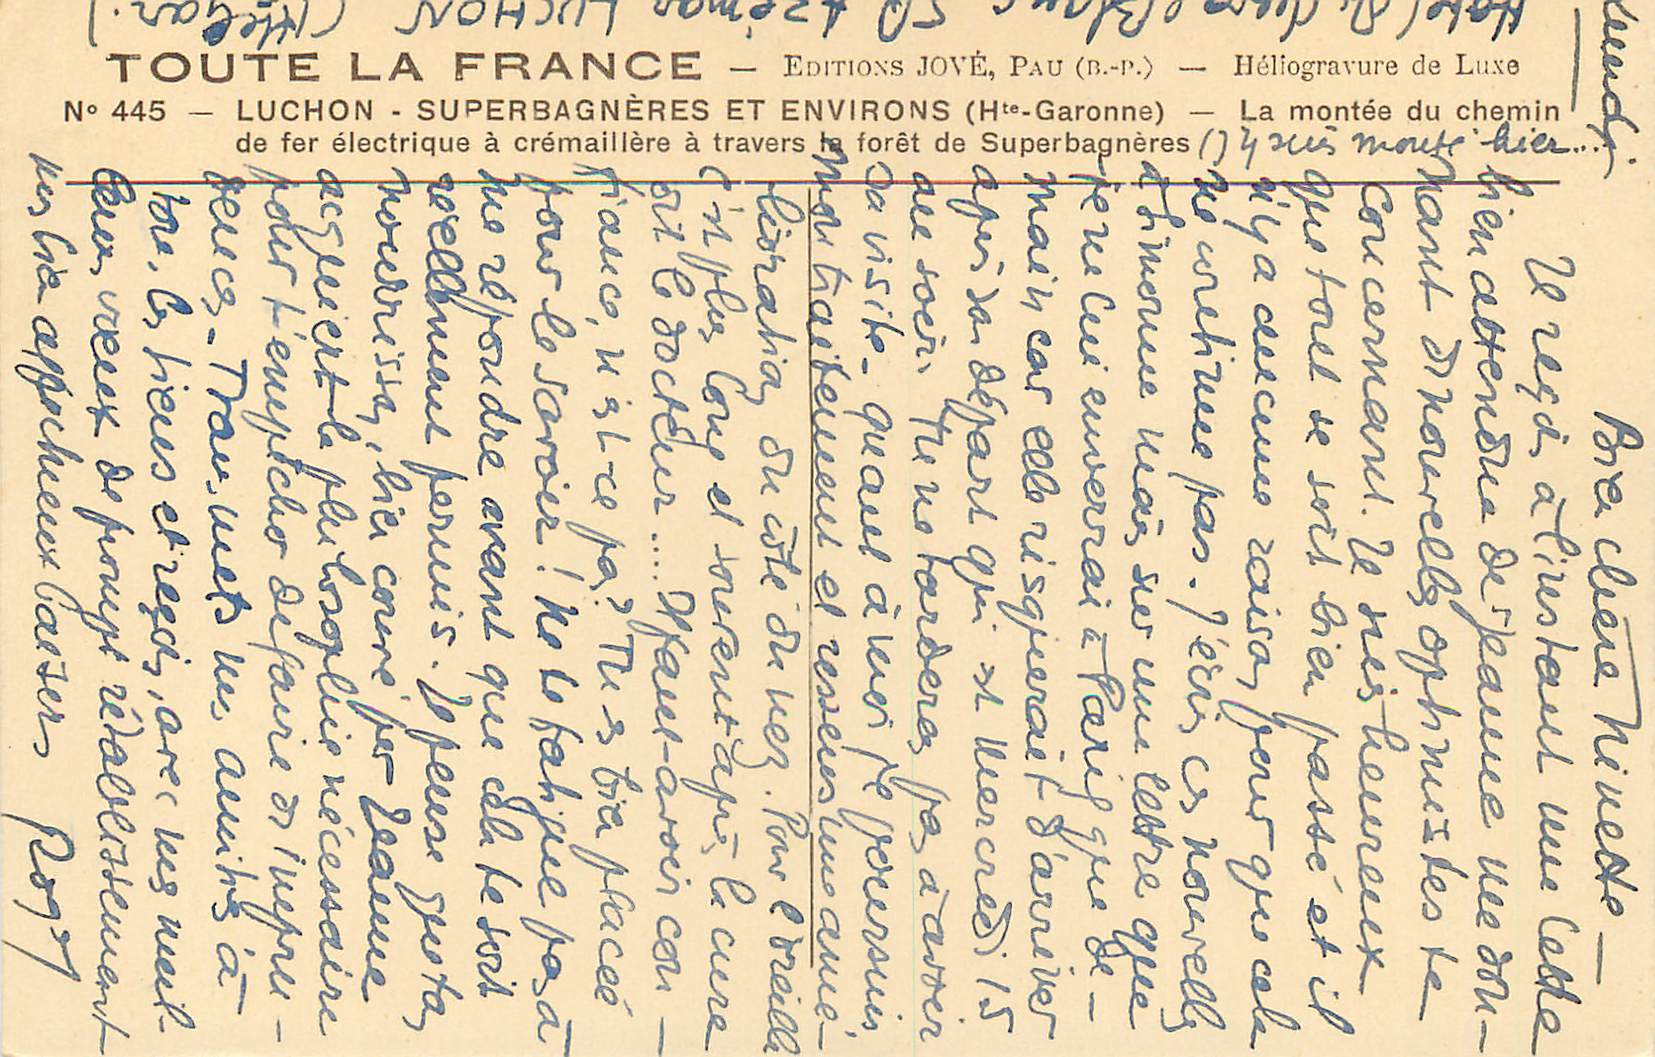 Hôtel du Grand Balcon 50 Azémar LUCHON (Hte Gar.)
TOUTE LA FRANCE — EDITIONS JOVÉ, PAU (B.-P.) — Héliogravure de Luxe
Nº 445 — LUCHON - SUPERBAGNÈRES ET ENVIRONS (Hte-Garonne) — La montée du chemin
de fer électrique à crémaillère à travers la forêt de Superbagnères (J'y suis monté hier...)
Lundi
Bien chère Minette —
Je reçois à l'instant une lettre
bien attendue de Jeanne me don-
nant d'nouvelles optimistes te
concernant. Je suis heureux
que tout se soit bien passé et il
n'y a aucune raison pour que cela
ne continue pas. J'écris ces nouvelles
à Simone mais sur une lettre que
je ne lui enverrai à Paris que de-
main car elle risquerait d'arriver
après son départ qui est Mercredi 15
au soir. Tu ne tarderas pas à avoir
sa visite - quant à moi je poursuis
mon traitement et ressens une amé-
lioration du côté du nez. Pour l'oreille
c'est plus long et souvent après la cure
dit le docteur.... Il faut avoir con-
fiance, n'est-ce pas? Tu es bien placée
pour le savoir! Ne te fatigue pas à
me répondre avant que cela te soit
réellement permis. Je pense que ta
nourrissa, bien couvé par Jeanne
acquiert la philosophie nécessaire
pour t'empêcher de faire d'impru-
dences - Trans-mets mes amitiés à
tous les tiens et reçois, avec mes meil-
leurs vœux de prompt rétablissement
mes bien affectueux baisers
Roger